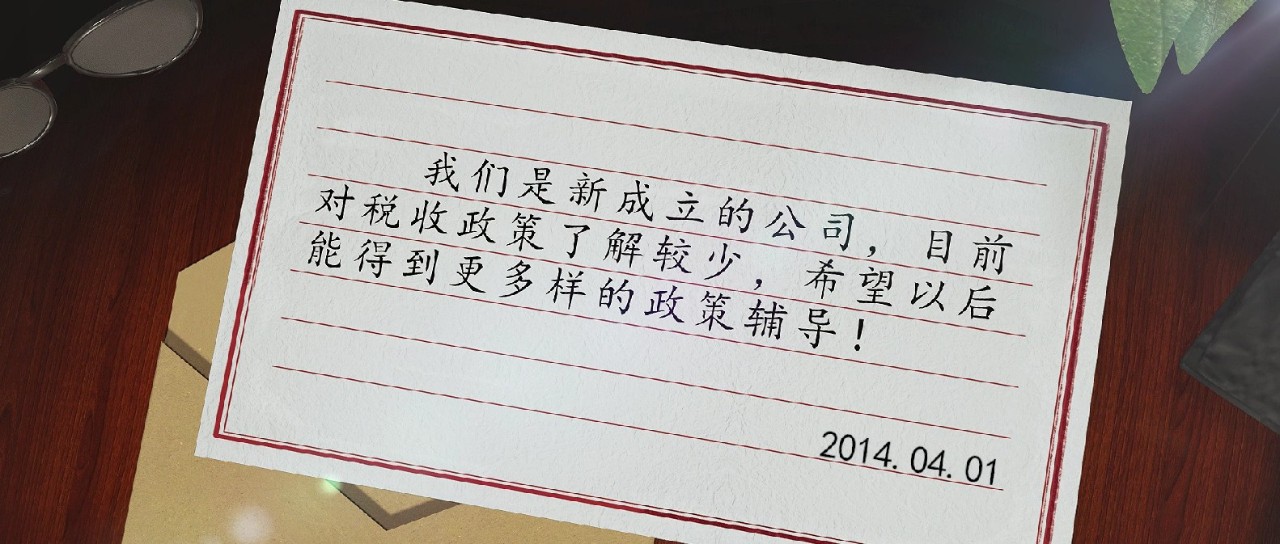 我们是新成立的公司，目前
对税收政策了解较少，希望以后
能得到更多样的政策辅导！
2014.04.01